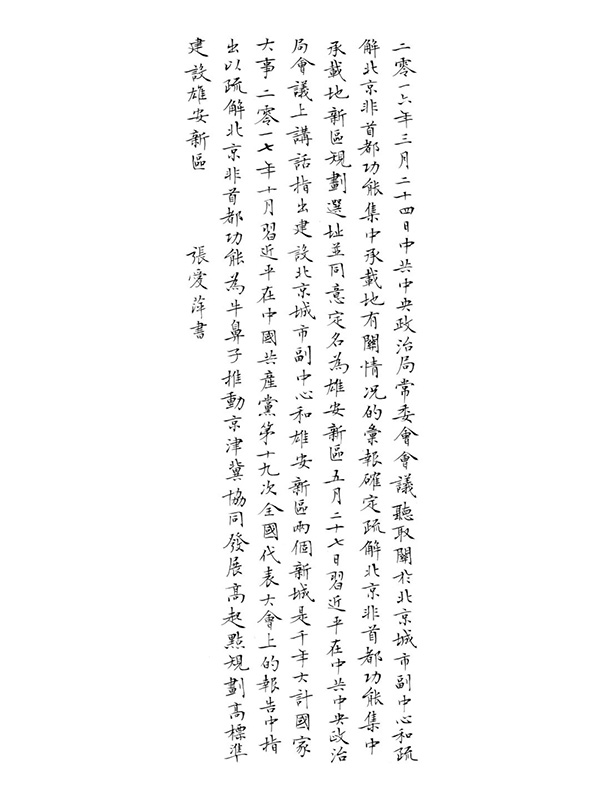 二零一六年三月二十四日中共中央政治局常委會會議聽取關於北京城市副中心和疏
解北京非首都功能集中承載地有關情況的彙報確定疏解北京非首都功能集中
承載地新區規劃選址並同意定名為雄安新區五月二十七日習近平在中共中央政治
局會議上講話指出建設北京城市副中心和雄安新區兩個新城是千年大計國家
大事二零一七年十月習近平在中國共產黨第十九次全國代表大會上的報告中指
出以疏解北京非首都功能為牛鼻子推動京津冀協同發展高起點規劃高標準
建設雄安新區 張愛萍書